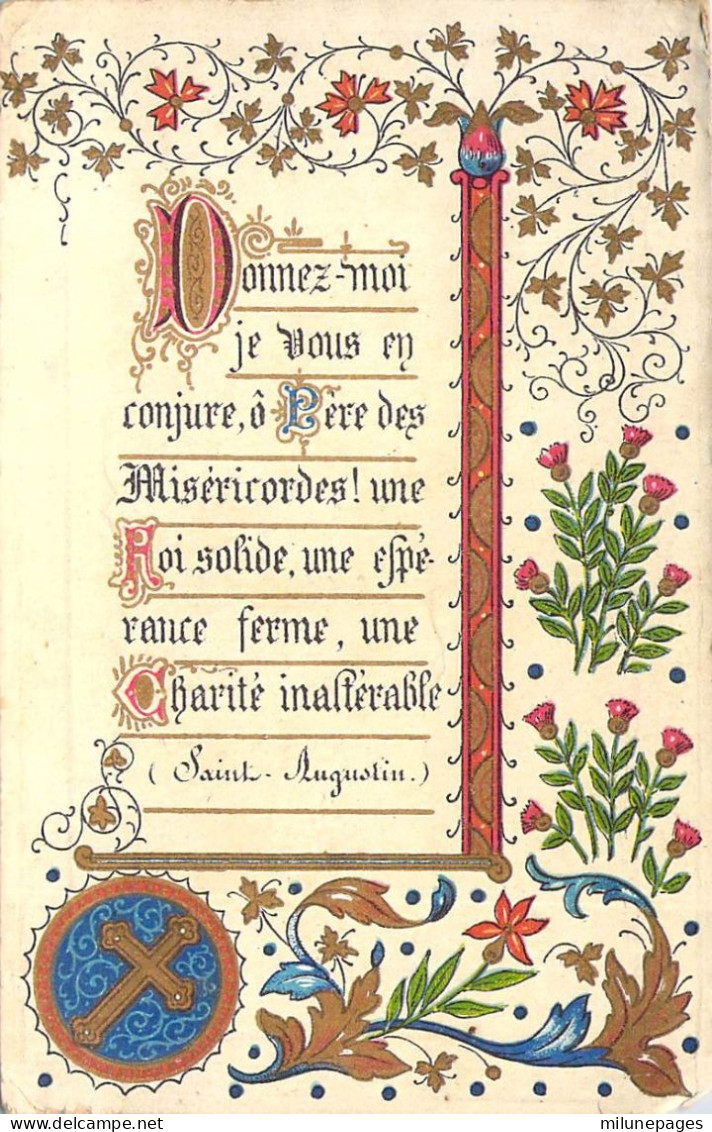 Donnez-moi
je vous en
conjure, ô Père des
Miséricordes! une
Foi solide, une espé-
rance ferme, une
Charité inaltérable
(Saint-Augustin.)
milunepages